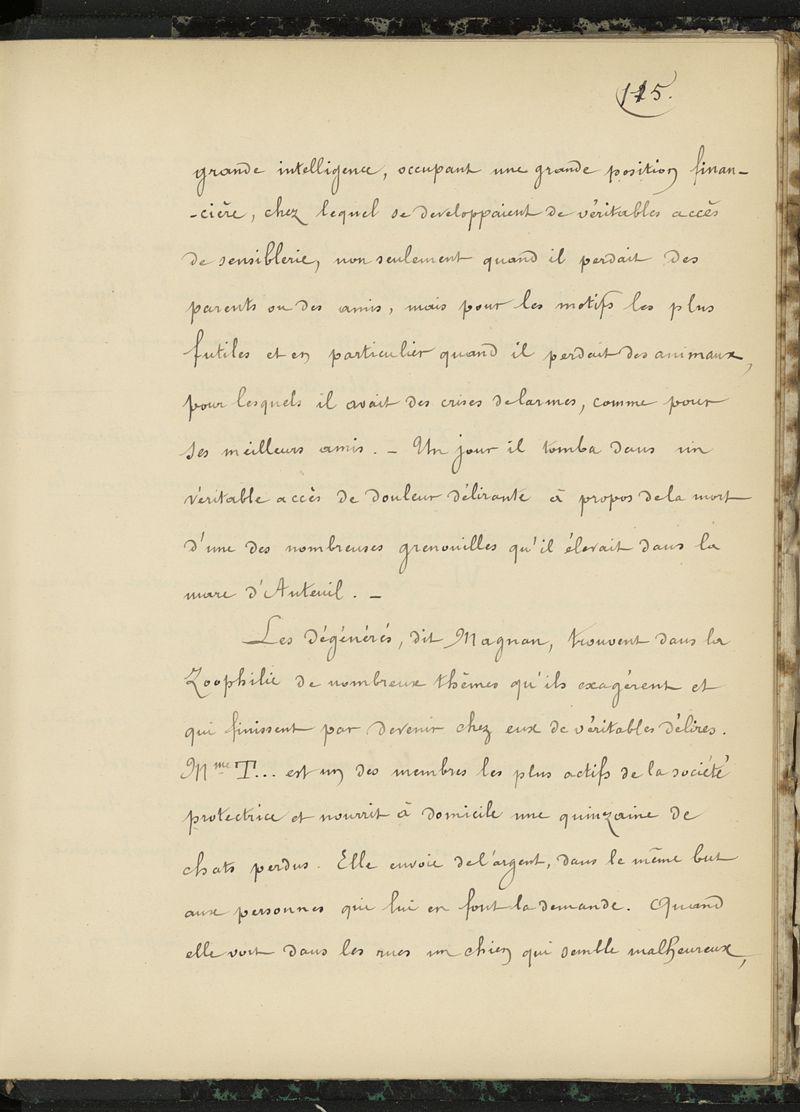 115.
grande intelligence, occupant une grande position finan-
-cière, chez lequel se developpaient de véritables accès
de sensiblerie, non seulement quand il perdait des
parents ou des amis, mais pour les motifs les plus
futiles et en particulier quand il perdait des animaux,
pour lesquels il avait des crises de larmes, comme pour
ses meilleurs amis. - Un jour il tomba dans un
véritable accès de douleur délirante à propos de la mort
d'une des nombreuses grenouilles qu'il élevait dans la
mare d'Auteuil. -
Les dégénérés, dit Magnan, trouvent dans la
Zoophilie de nombreux thèmes qu'ils exagérent et
qui finissent par devenir chez eux de véritables délires.
Mme T... est un des membres les plus actifs de la société
protectrice et nourrit à domicile une quinzaine de
chats perdus. Elle envoie de l'argent, dans le même but
aux personnes qui lui en font la demande. Quand
elle voit dans les rues un chien qui semble malheureux,